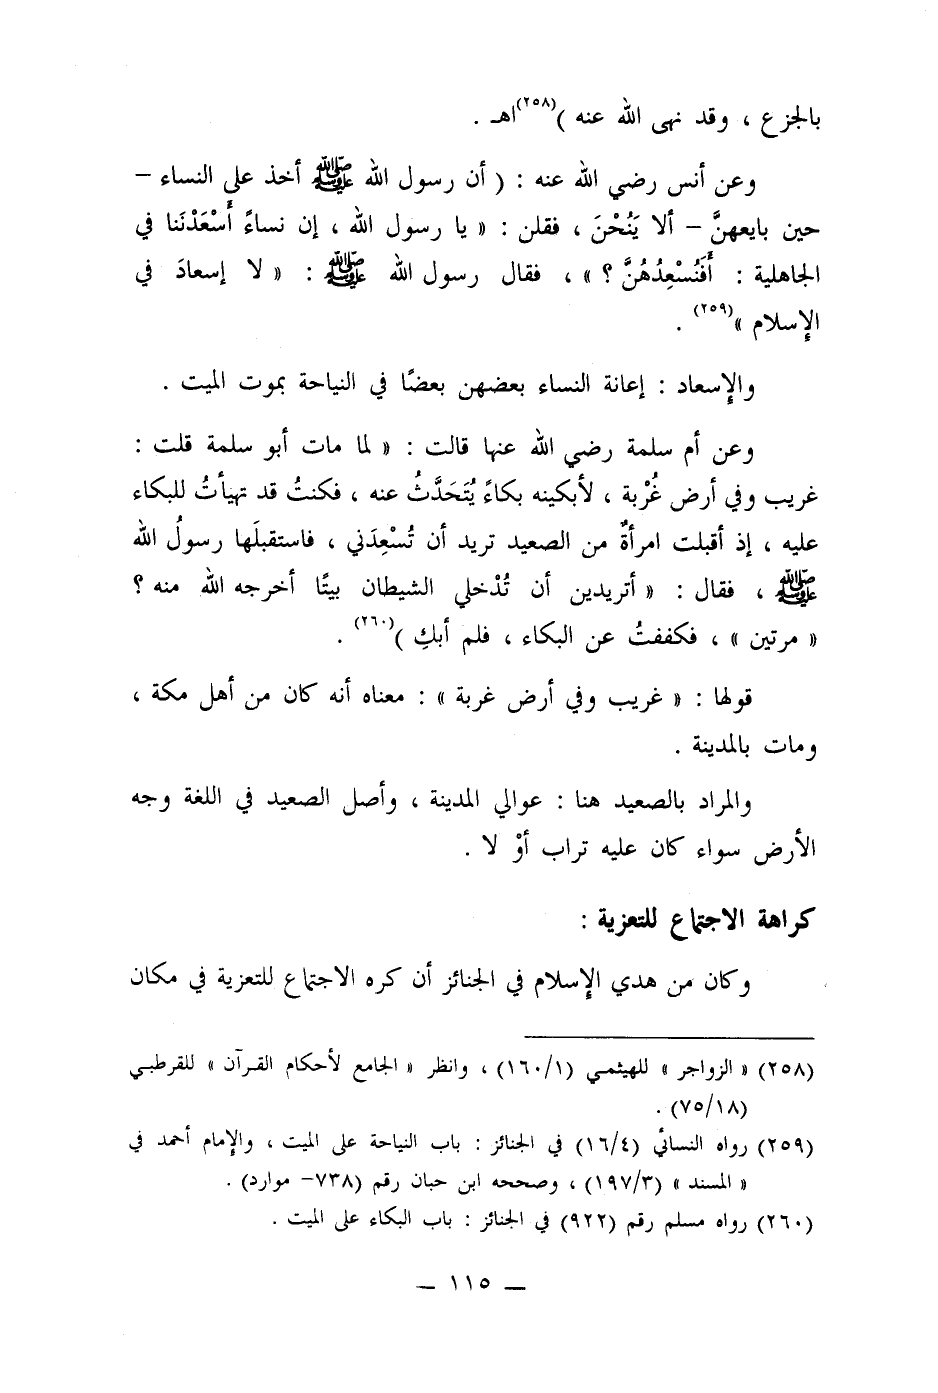 بالجزع ، وقد نهى الله عنه )(٢٥٨)اهـ .
وعن أنس رضي الله عنه : ( أن رسول الله ﷺ أخذ على النساء –
حين بايعهنَّ – ألا يَنُحْنَ ، فقلن : « يا رسول الله ، إن نساءً أَسْعَدْنَنا في
الجاهلية : أَفَنُسْعِدُهُنَّ ؟ » ، فقال رسول الله ﷺ : « لا إسعادَ في
الإسلام »(٢٥٩) .
والإسعاد : إعانة النساء بعضهن بعضًا في النياحة بموت الميت .
وعن أم سلمة رضي الله عنها قالت : « لما مات أبو سلمة قلت :
غريب وفي أرض غُرْبة ، لأبكينه بكاءً يُتَحَدَّثُ عنه ، فكنتُ قد تهيأتُ للبكاء
عليه ، إذ أقبلت امرأةٌ من الصعيد تريد أن تُسْعِدَني ، فاستقبلَها رسولُ الله
ﷺ ، فقال : « أتريدين أن تُدْخلي الشيطان بيتًا أخرجه الله منه ؟
« مرتين » ، فكففتُ عن البكاء ، فلم أبكِ )(٢٦٠) .
قولها : « غريب وفي أرض غربة » : معناه أنه كان من أهل مكة ،
ومات بالمدينة .
والمراد بالصعيد هنا : عوالي المدينة ، وأصل الصعيد في اللغة وجه
الأرض سواء كان عليه تراب أوْ لا .
كراهة الاجتماع للتعزية :
وكان من هدي الإسلام في الجنائز أن كره الاجتماع للتعزية في مكان
(٢٥٨) « الزواجر » للهيثمي (١/‏١٦٠) ، وانظر « الجامع لأحكام القرآن » للقرطبي
(١٨/‏٧٥) .
(٢٥٩) رواه النسائي (٤/‏١٦) في الجنائز : باب النياحة على الميت ، والإمام أحمد في
« المسند » (٣/‏١٩٧) ، وصححه ابن حبان رقم (٧٣٨– موارد) .
(٢٦٠) رواه مسلم رقم (٩٢٢) في الجنائز : باب البكاء على الميت .
— ١١٥ —